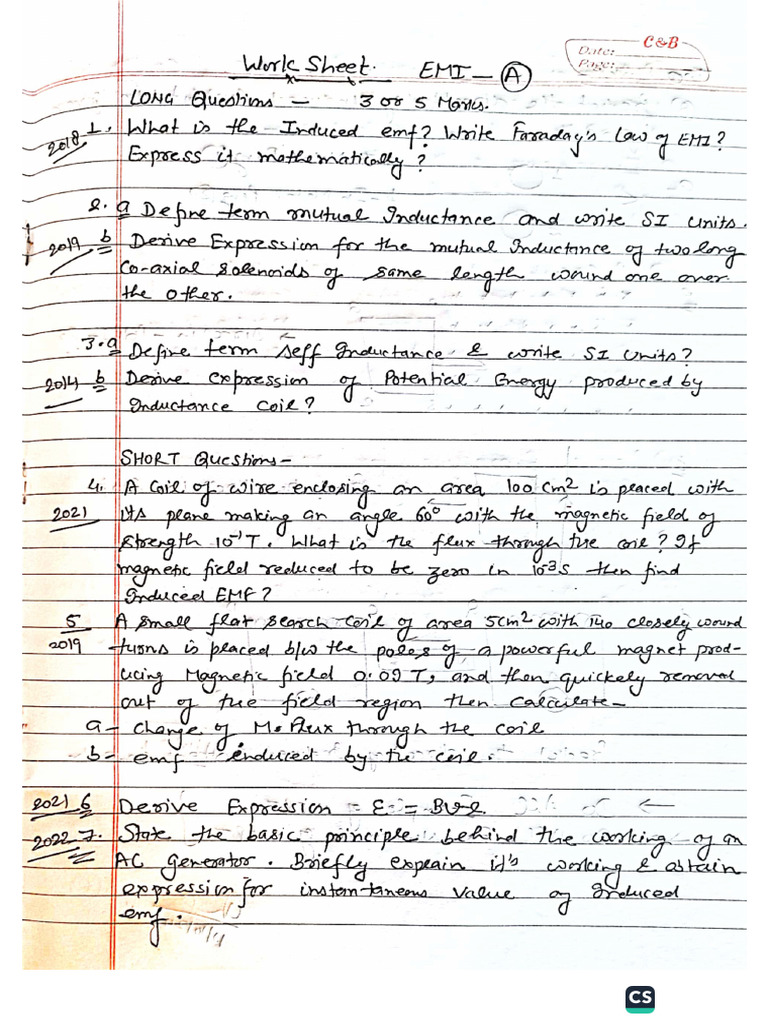 C&B
Date:
Page:
Work Sheet. EMI - A
LONG Questions - 3 or 5 Marks.
2018 1. What is the Induced emf? Write Faraday's Law of EMI?
Express it mathematically?
2. a Define term mutual Inductance and write SI units.
2019 b Derive Expression for the mutual Inductance of two long
Co-axial Solenoids of same length wound one over
the other.
3. a Define term Self Inductance & write SI units?
2014 b Derive expression of Potential Energy produced by
Inductance coil?
SHORT Questions-
4. A Coil of wire enclosing an area 100 cm² is placed with
2021 its plane making an angle 60° with the magnetic field of
strength 10⁻¹T. What is the flux through the coil? If
magnetic field reduced to be zero in 10⁻³s then find
Induced EMF?
5 A small flat search coil of area 5cm² with 140 closely wound
2019 turns is placed b/w the poles of a powerful magnet prod-
ucing Magnetic field 0.09 T, and then quickely removed
out of the field region then Calculate-
a- change of M. flux through the coil
b- emf enduced by the coil.
2021 6 Derive Expression = ε = Bvl.
2022 7. State the basic principle behind the working of an
AC generator. Briefly expein it's working & obtain
expression for instantaneous value of Induced
emf.
CS